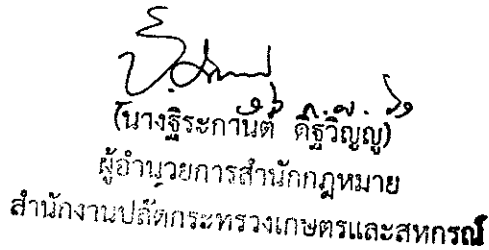 (นางฐิระกานต์ ดิฐวิญญู)
ผู้อำนวยการสำนักกฎหมาย
สำนักงานปลัดกระทรวงเกษตรและสหกรณ์